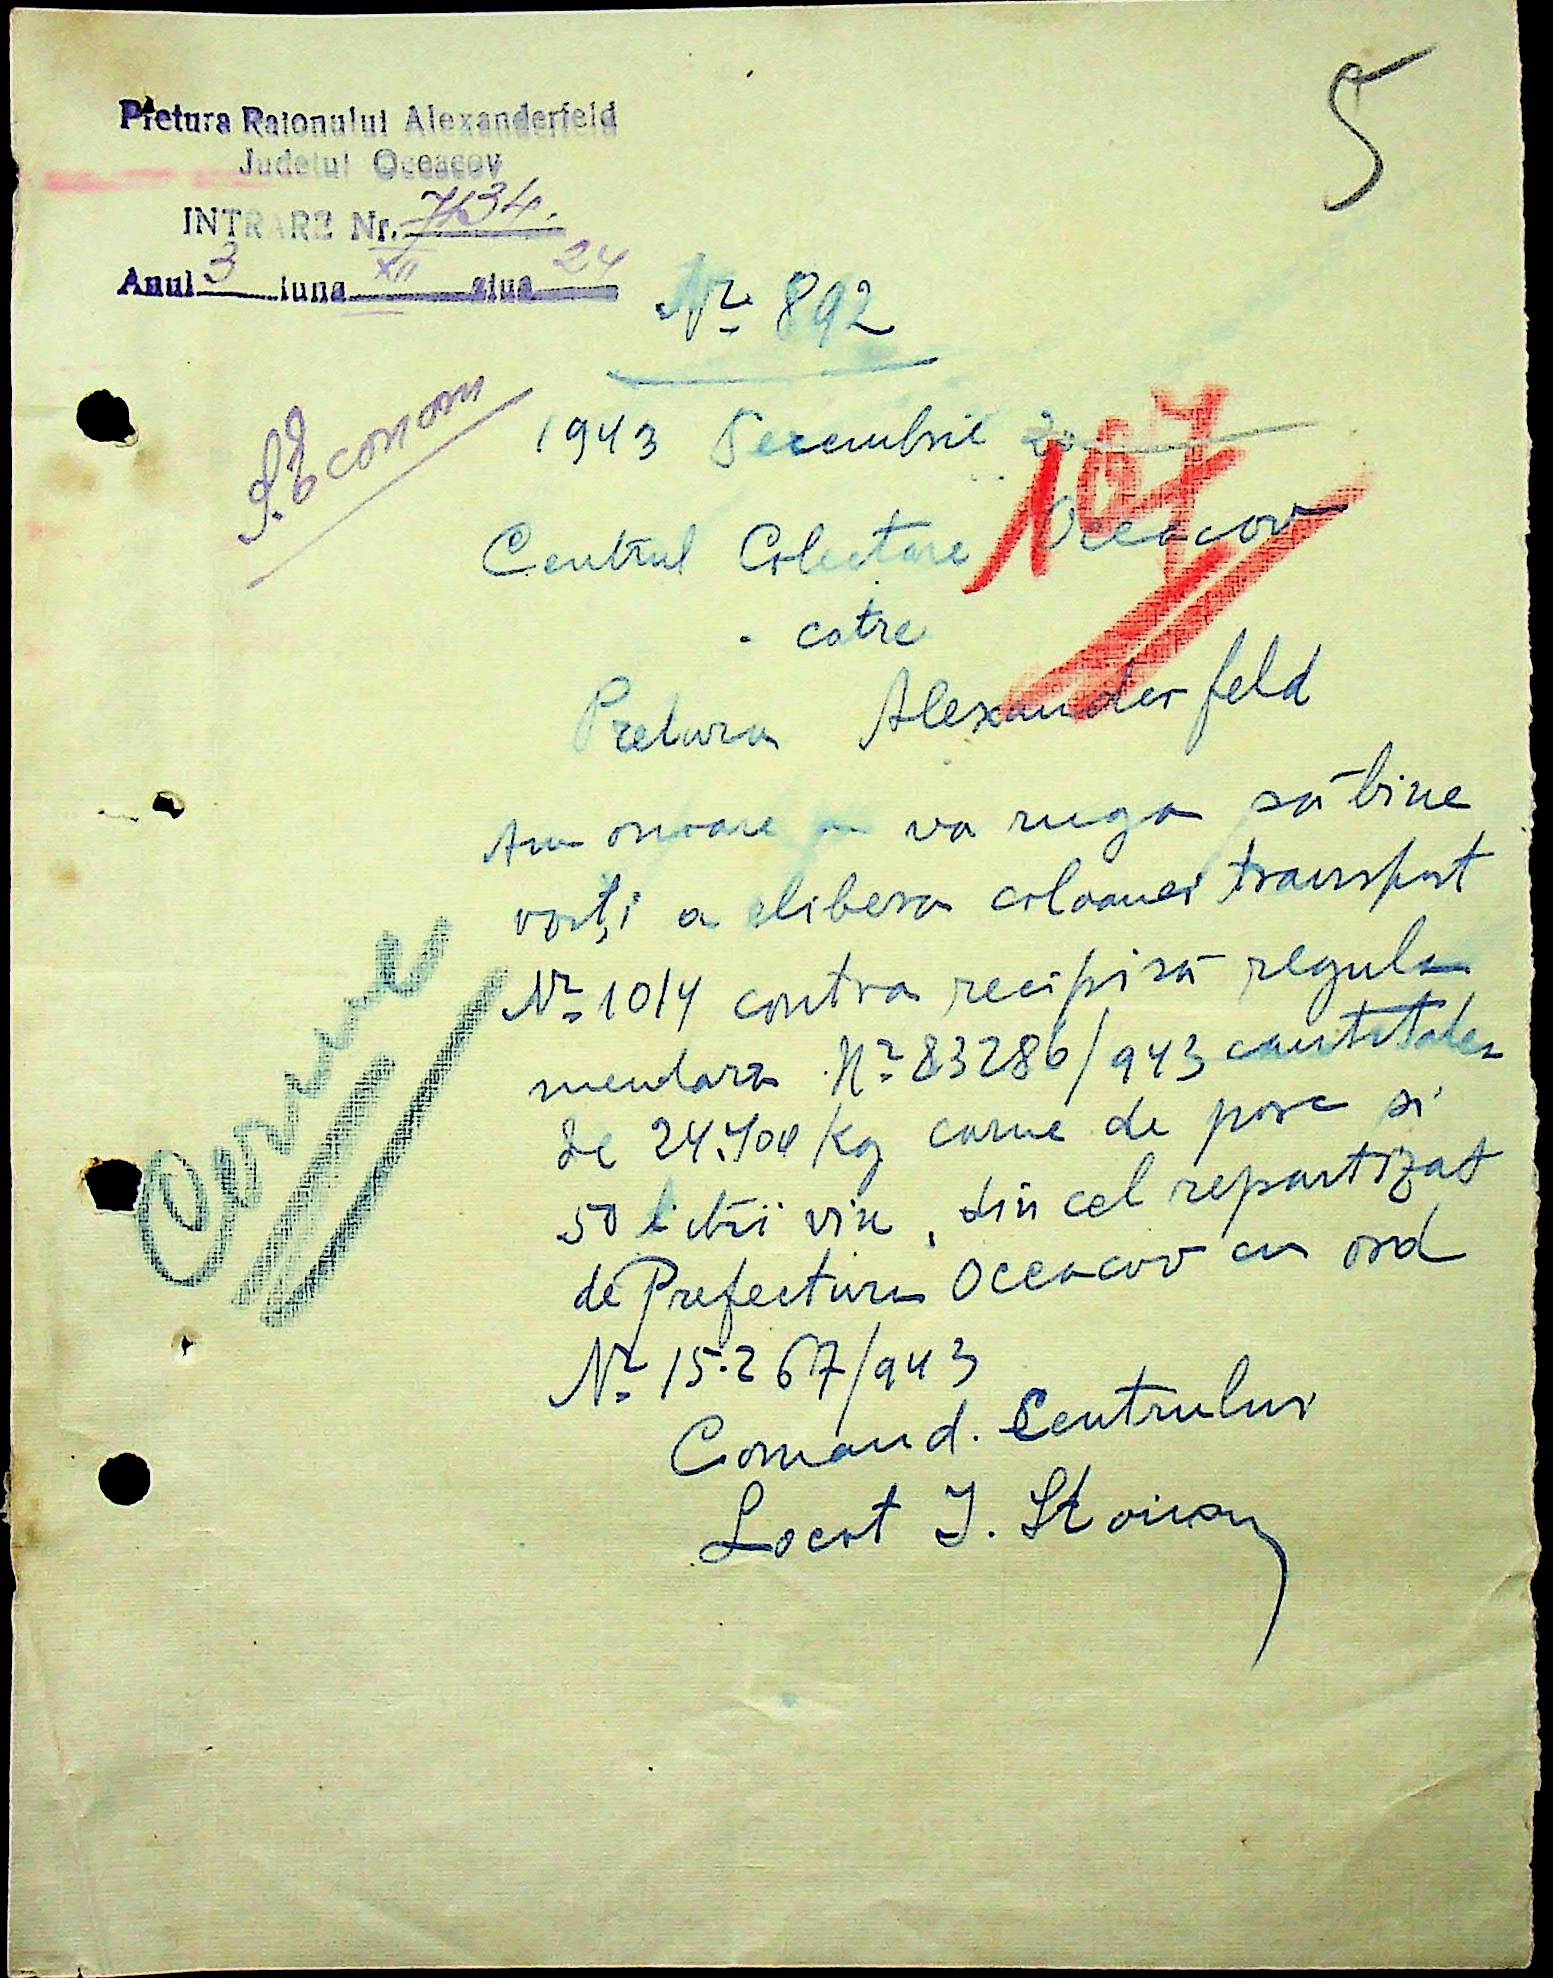 5
Pretura Raionului Alexanderfeld
Judetul Oceacov
INTRARE Nr. 7134.
Anul 3 luna XII ziua 24
Nr 892
S. Econom
1943 Decembrie 20
107
Centrul Colectare Oceacov
catre
Pretura Alexanderfeld
Am onoare a va ruga să bine
voiți a elibera coloanei transport
Nr 10/4 contra recipisă regula
mentara Nr 83286/943 cantitatea
de 24.700 kg carne de porc si
50 litri vin, din cel repartizat
de Prefectura Oceacov cu ord
Nr 15.267/943
Comand. Centrului
Locot I. Stoican